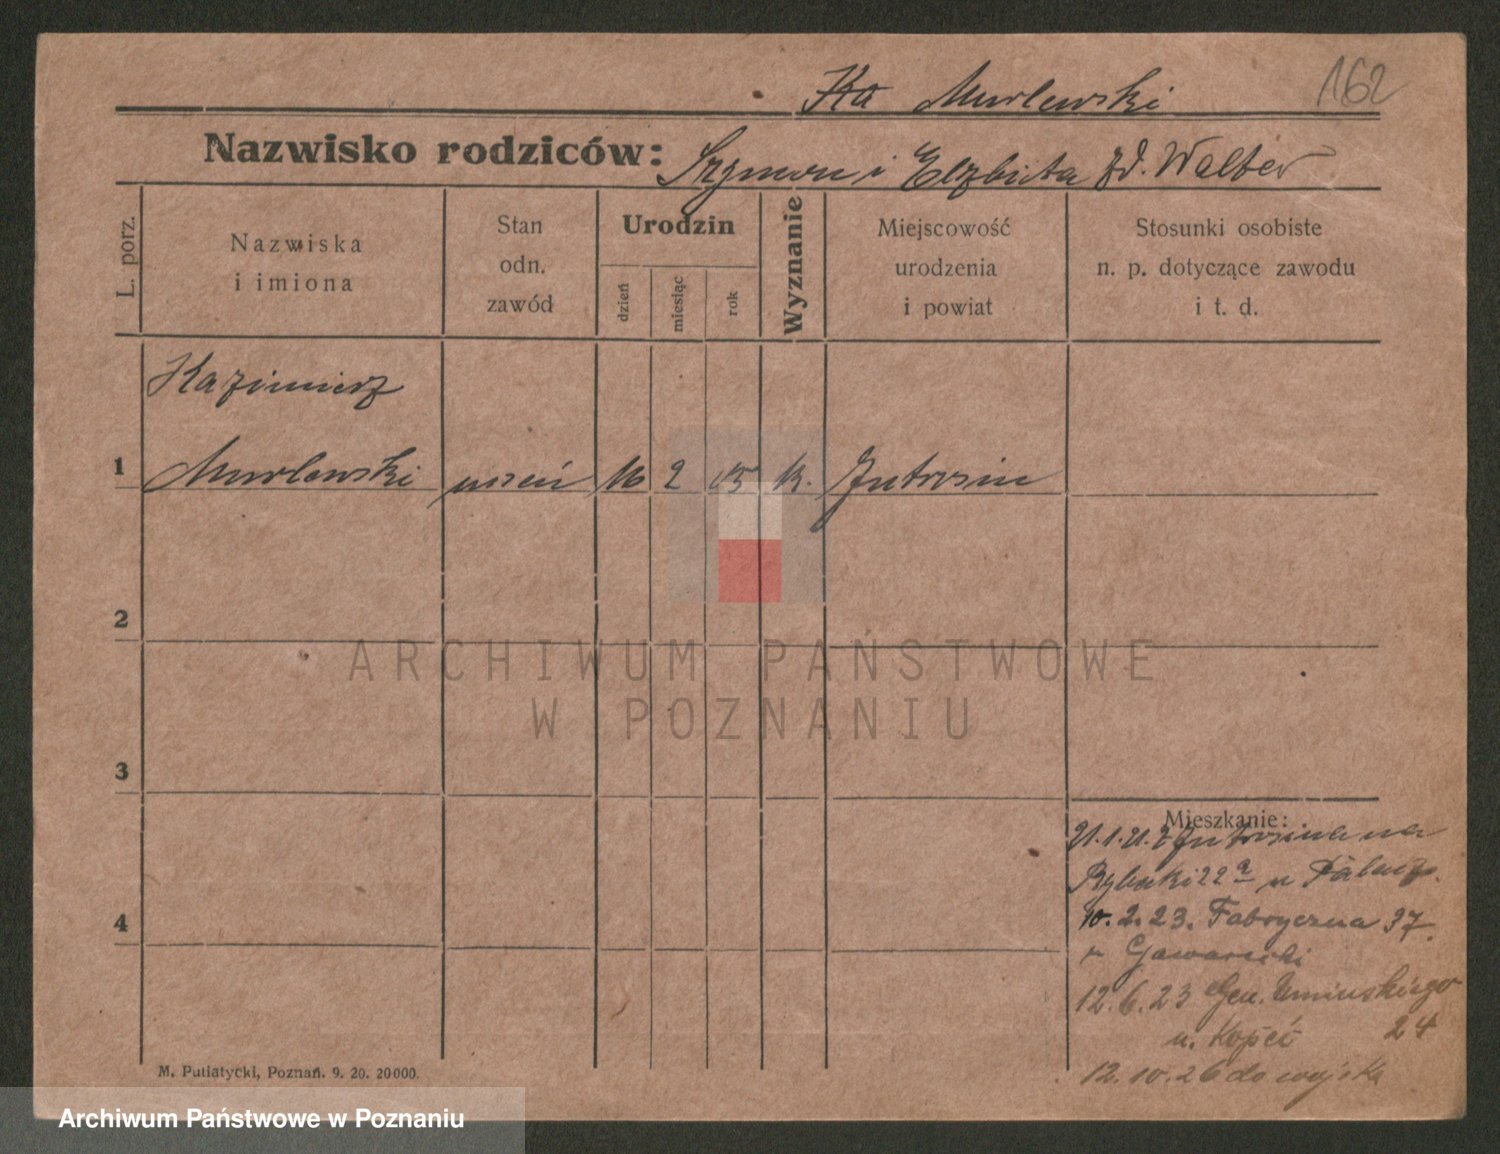 162
Ka Murlewski
Nazwisko rodziców: Szymon i Elżbieta zd. Walter
L. porz.
Nazwiska
i imiona
Stan
odn.
zawód
Urodzin
dzień
miesiąc
rok
Wyznanie
Miejscowość
urodzenia
i powiat
Stosunki osobiste
n. p. dotyczące zawodu
i t. d.
Kazimierz
1 Murlewski uczeń 16 2 05 k. Jutrosin
2
3
4
ARCHIWUM PAŃSTWOWE
W POZNANIU
Mieszkanie:
21.1.21. z Jutrosina na
Rybaki 22a u
10.2.23. Fabryczna 37.
u
12.6.23 Gen. Umińskiego
24
u. Kopeć
12.10.26 do wojska
M. Putiatycki, Poznań. 9. 20. 20000.
Archiwum Państwowe w Poznaniu